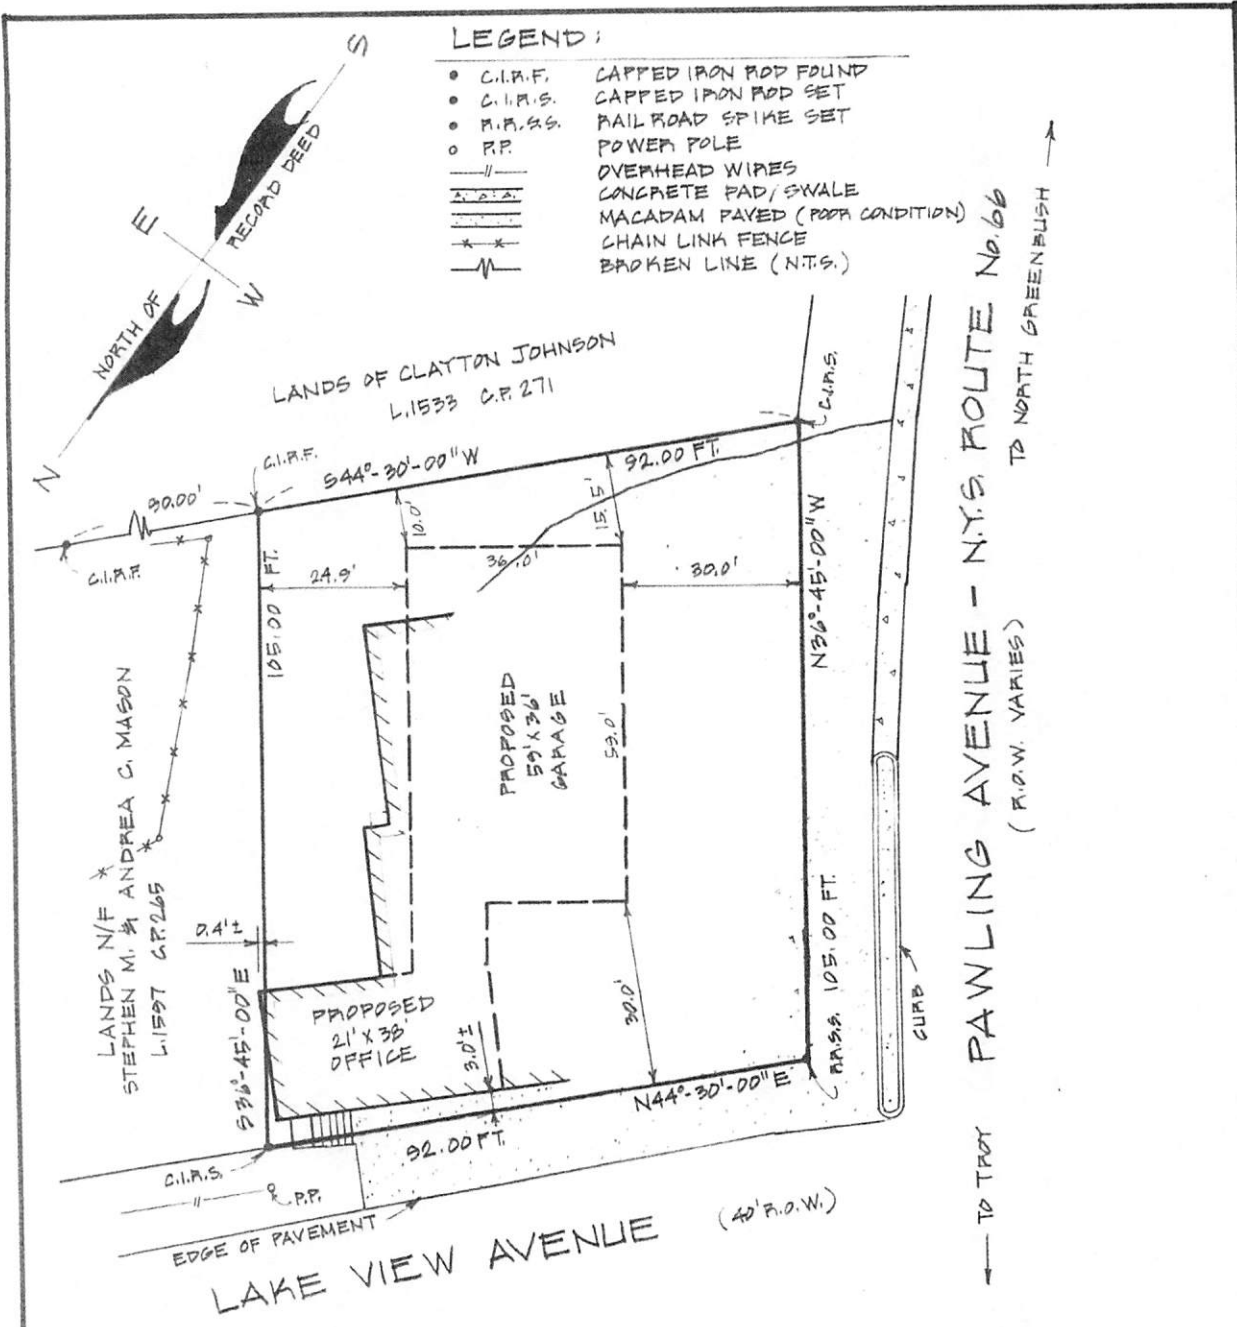 LEGEND:
C.I.R.F. CAPPED IRON ROD FOUND
C.I.R.S. CAPPED IRON ROD SET
R.R.S.S. RAILROAD SPIKE SET
P.P. POWER POLE
OVERHEAD WIRES
CONCRETE PAD/SWALE
MACADAM PAVED (POOR CONDITION)
CHAIN LINK FENCE
BROKEN LINE (N.T.S.)
S
E
W
N
NORTH OF
RECORD DEED
LANDS OF CLAYTON JOHNSON
L.1533 C.P. 271
C.I.R.F.
S44°-30'-00"W
92.00 FT.
C.I.R.S.
90.00'
C.I.R.F.
10.0'
15.5'
36.0'
24.9'
30.0'
105.00 FT.
S36°-45'-00"E
N36°-45'-00"W
105.00 FT.
PROPOSED
59' X 36'
GARAGE
59.0'
LANDS N/F
STEPHEN M. & ANDREA C. MASON
L.1597 C.P.265
0.4'±
PROPOSED
21' X 38'
OFFICE
3.0'±
30.0'
R.R.S.S.
CURB
N44°-30'-00"E
92.00 FT.
C.I.R.S.
P.P.
EDGE OF PAVEMENT
LAKE VIEW AVENUE (40' R.O.W.)
PAWLING AVENUE - N.Y.S. ROUTE No.66
(R.O.W. VARIES)
TO NORTH GREENBUSH
TO TROY